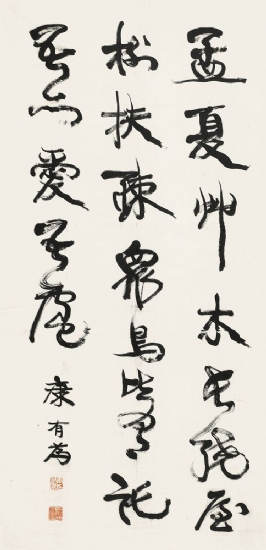 孟夏艸木長繞屋
樹扶疎眾鳥欣有託
吾亦愛吾廬
康有為